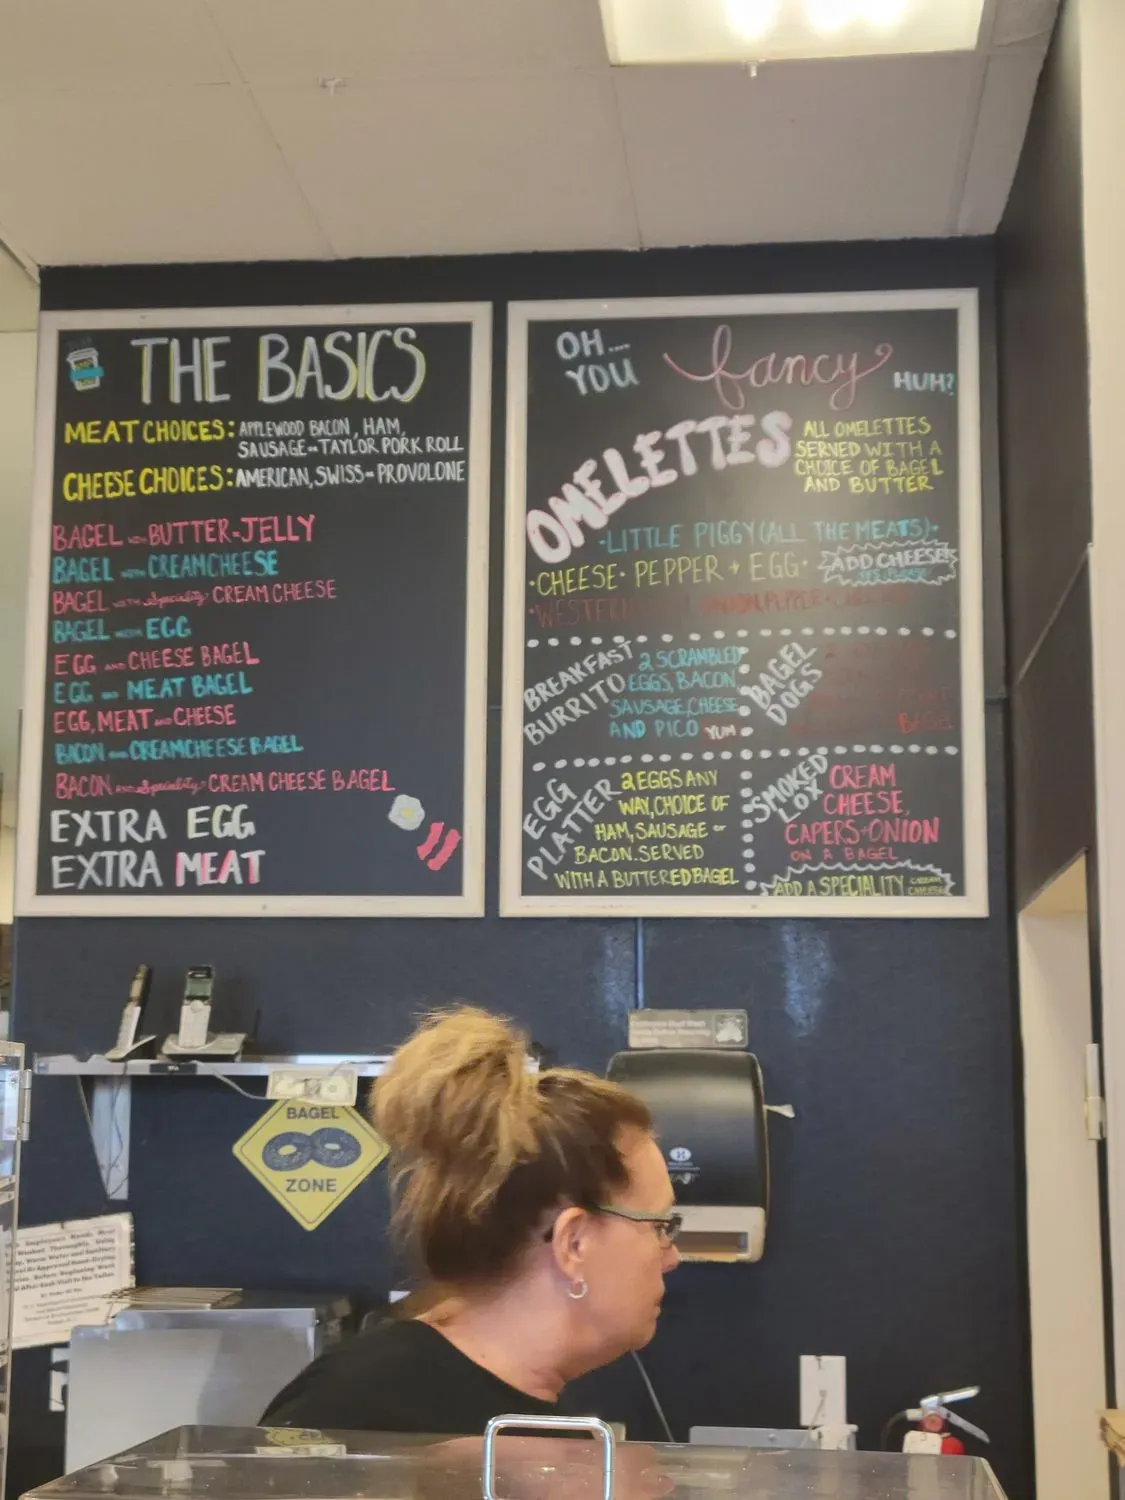 THE BASICS
MEAT CHOICES: APPLEWOOD BACON, HAM,
SAUSAGE TAYLOR PORK ROLL
CHEESE CHOICES: AMERICAN, SWISS PROVOLONE
BAGEL WITH BUTTER JELLY
BAGEL WITH CREAM CHEESE
BAGEL WITH Speciality CREAM CHEESE
BAGEL WITH EGG
EGG AND CHEESE BAGEL
EGG AND MEAT BAGEL
EGG, MEAT AND CHEESE
BACON AND CREAM CHEESE BAGEL
BACON AND Speciality CREAM CHEESE BAGEL
EXTRA EGG
EXTRA MEAT
OH....
YOU
fancy
HUH?
OMELETTES
ALL OMELETTES
SERVED WITH A
CHOICE OF BAGEL
AND BUTTER
·LITTLE PIGGY (ALL THE MEATS)·
·CHEESE· PEPPER + EGG·
ADD CHEESE!
·WESTERN
BREAKFAST
BURRITO
2 SCRAMBLED
EGGS, BACON
SAUSAGE, CHEESE
AND PICO YUM
BAGEL
DOGS
BAGEL
EGG
PLATTER
2 EGGS ANY
WAY, CHOICE OF
HAM, SAUSAGE or
BACON. SERVED
WITH A BUTTERED BAGEL
SMOKED
LOX
CREAM
CHEESE,
CAPERS + ONION
ON A BAGEL
ADD A SPECIALITY CREAM CHEESE
BAGEL
ZONE